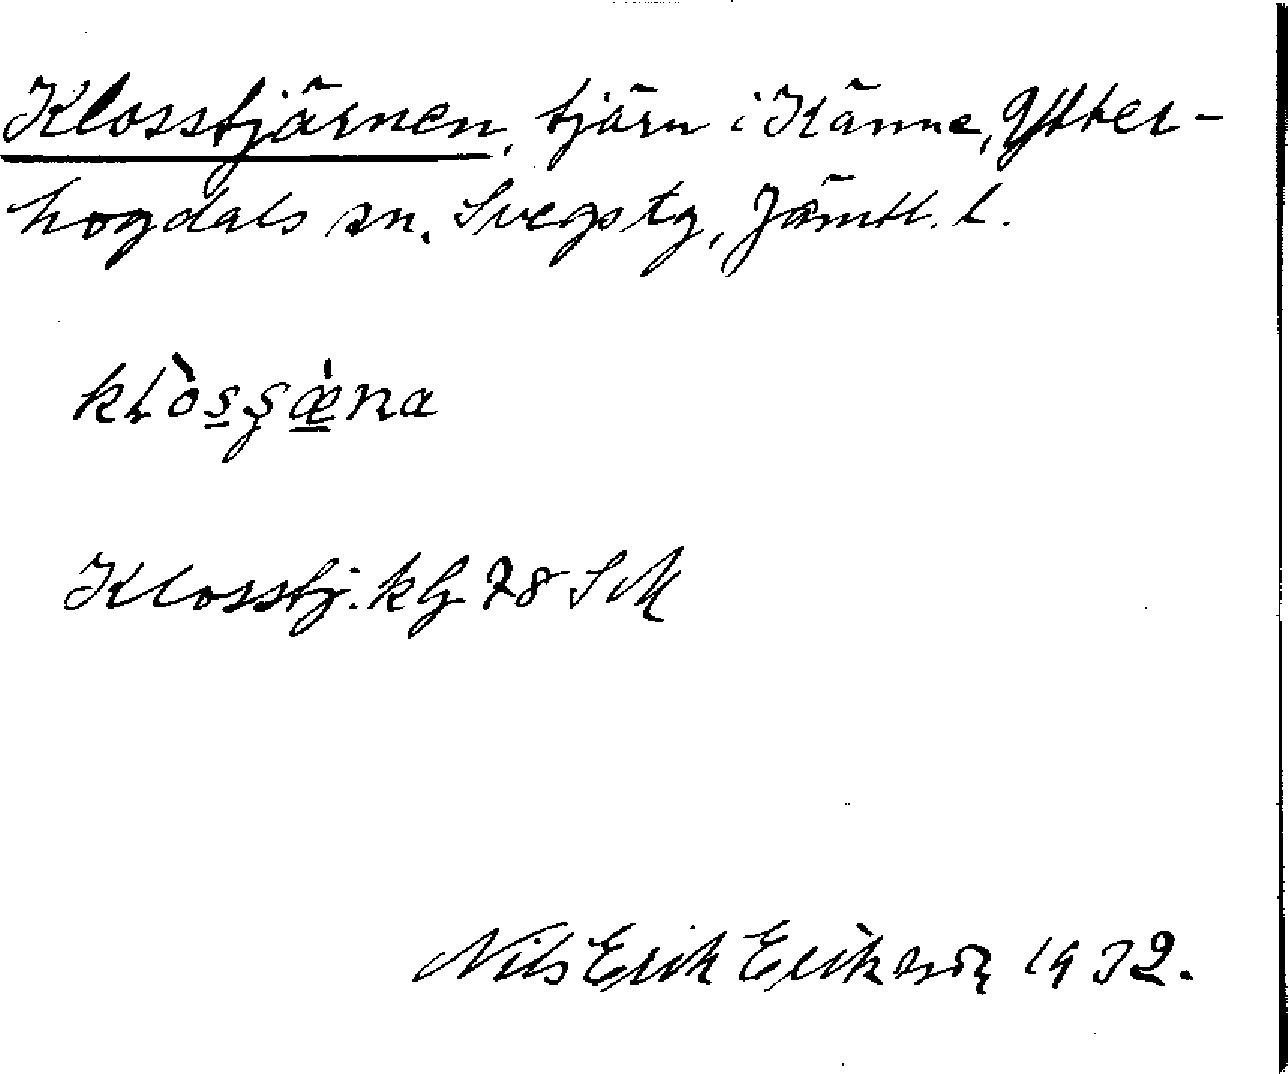 Klosstjärnen, tjärn i Känne, Ytter-
hogdals sn. Svegs tg, Jämtl. l.
klòsşæ̀na
Klosstj. kb 78 SM
Nils Erik Erikson 1932.